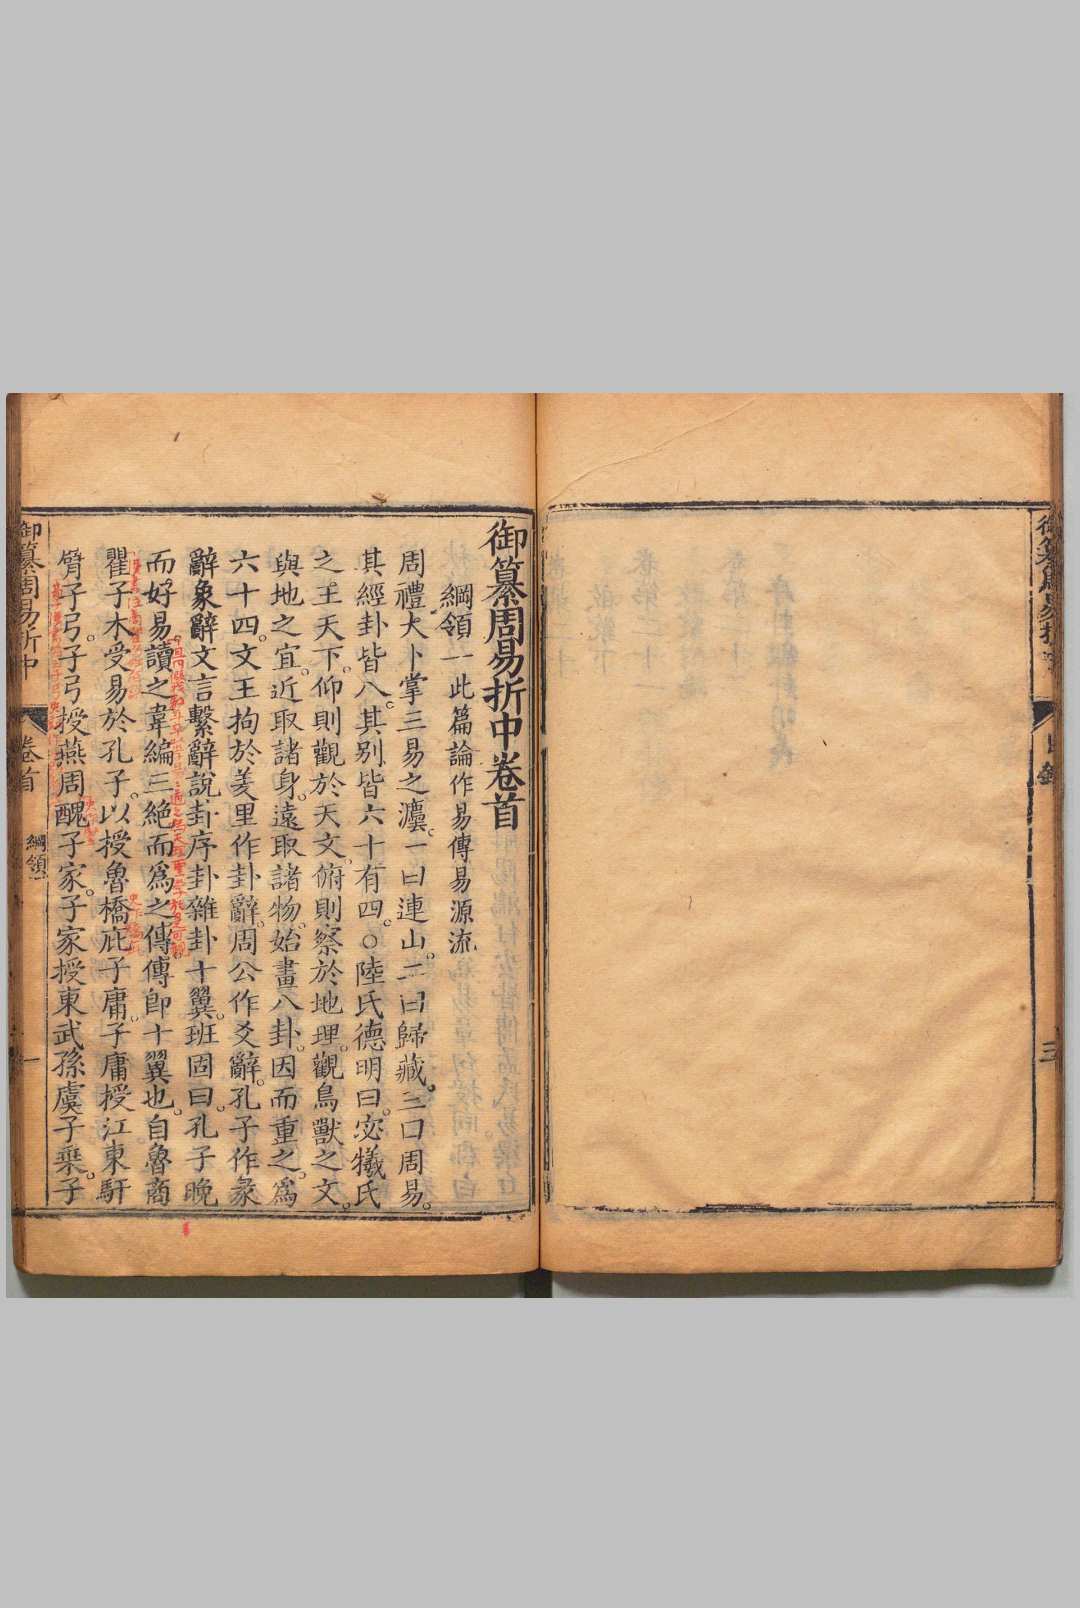 目錄
三
御纂周易折中卷首
綱領一此篇論作易傳易源流
周禮大卜掌三易之灋。一曰連山。二曰歸藏。三曰周易。
其經卦皆八。其別皆六十有四。○陸氏德明曰。宓犧氏
之王天下。仰則觀於天文。俯則察於地理。觀鳥獸之文。
與地之宜。近取諸身。遠取諸物。始畫八卦。因而重之。為
六十四。文王拘於羑里作卦辭。周公作爻辭。孔子作彖
辭象辭文言繫辭說卦序卦雜卦十翼。班固曰。孔子晚
而好易讀之韋編三絕而為之傳。傳即十翼也。自魯商
瞿子木受易於孔子。以授魯橋庇子庸。子庸授江東馯
臂子弓。子弓授燕周醜子家。子家授東武孫虞子乗。子
御纂周易折中
卷首
綱領一
一